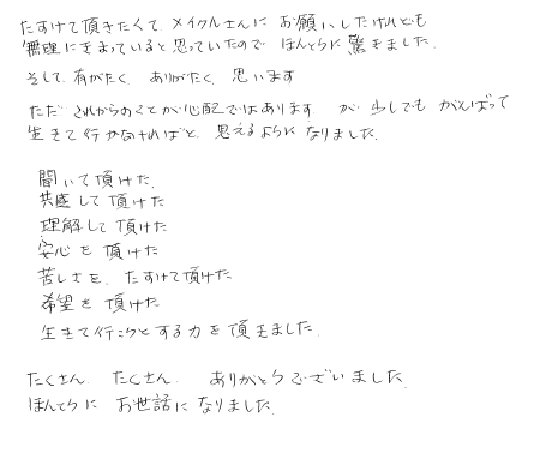 たすけて頂きたくて、メイクルさんに お願いしたけれども
無理にきまっていると思っていたので ほんとうに驚きました。
そして、有がたく、ありがたく、思います
ただ これからのことが心配ではあります が 少しでも がんばって
生きて行かなければと、思えるように なりました。
聞いて頂けた。
共感して頂けた
理解して頂けた
安心を 頂けた
苦しさを、たすけて頂けた
希望を 頂けた
生きて行こうとする力を頂きました。
たくさん、たくさん、ありがとうございました。
ほんとうに お世話になりました。